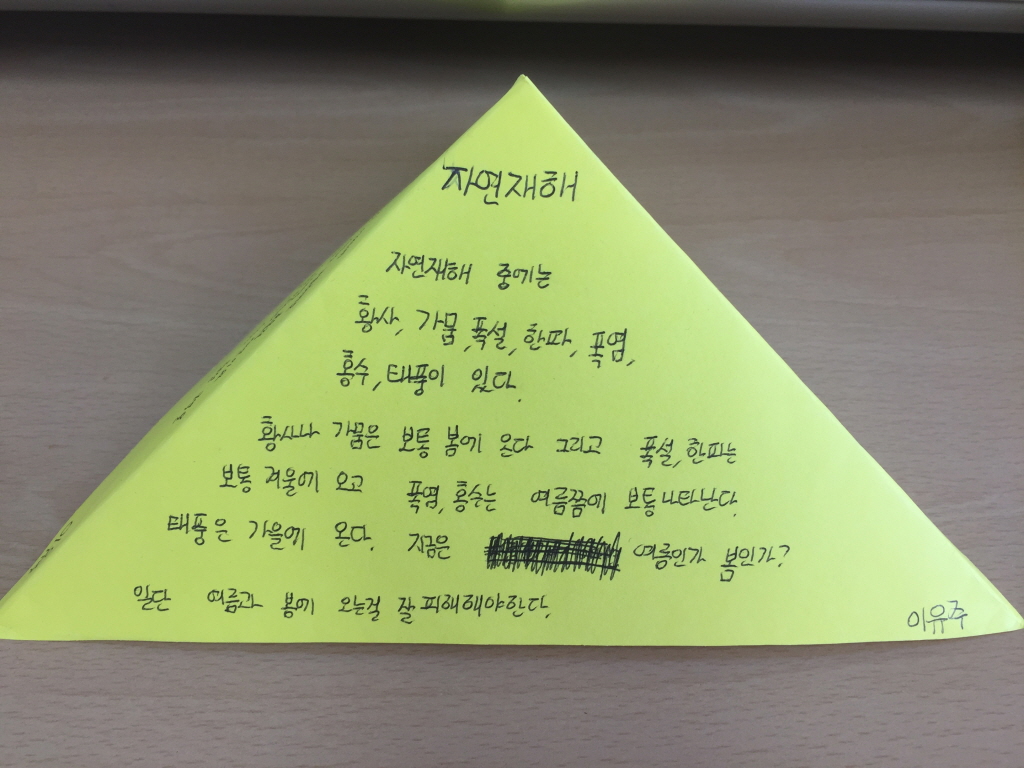 자연재해
자연재해 중에는
황사, 가뭄, 폭설, 한파, 폭염,
홍수, 태풍이 있다.
황사나 가뭄은 보통 봄에 온다 그리고 폭설, 한파는
보통 겨울에 오고 폭염, 홍수는 여름쯤에 보통 나타난다.
태풍은 가을에 온다. 지금은 여름인가 봄인가?
일단 여름과 봄에 오는걸 잘 피해해야한다.
이유주